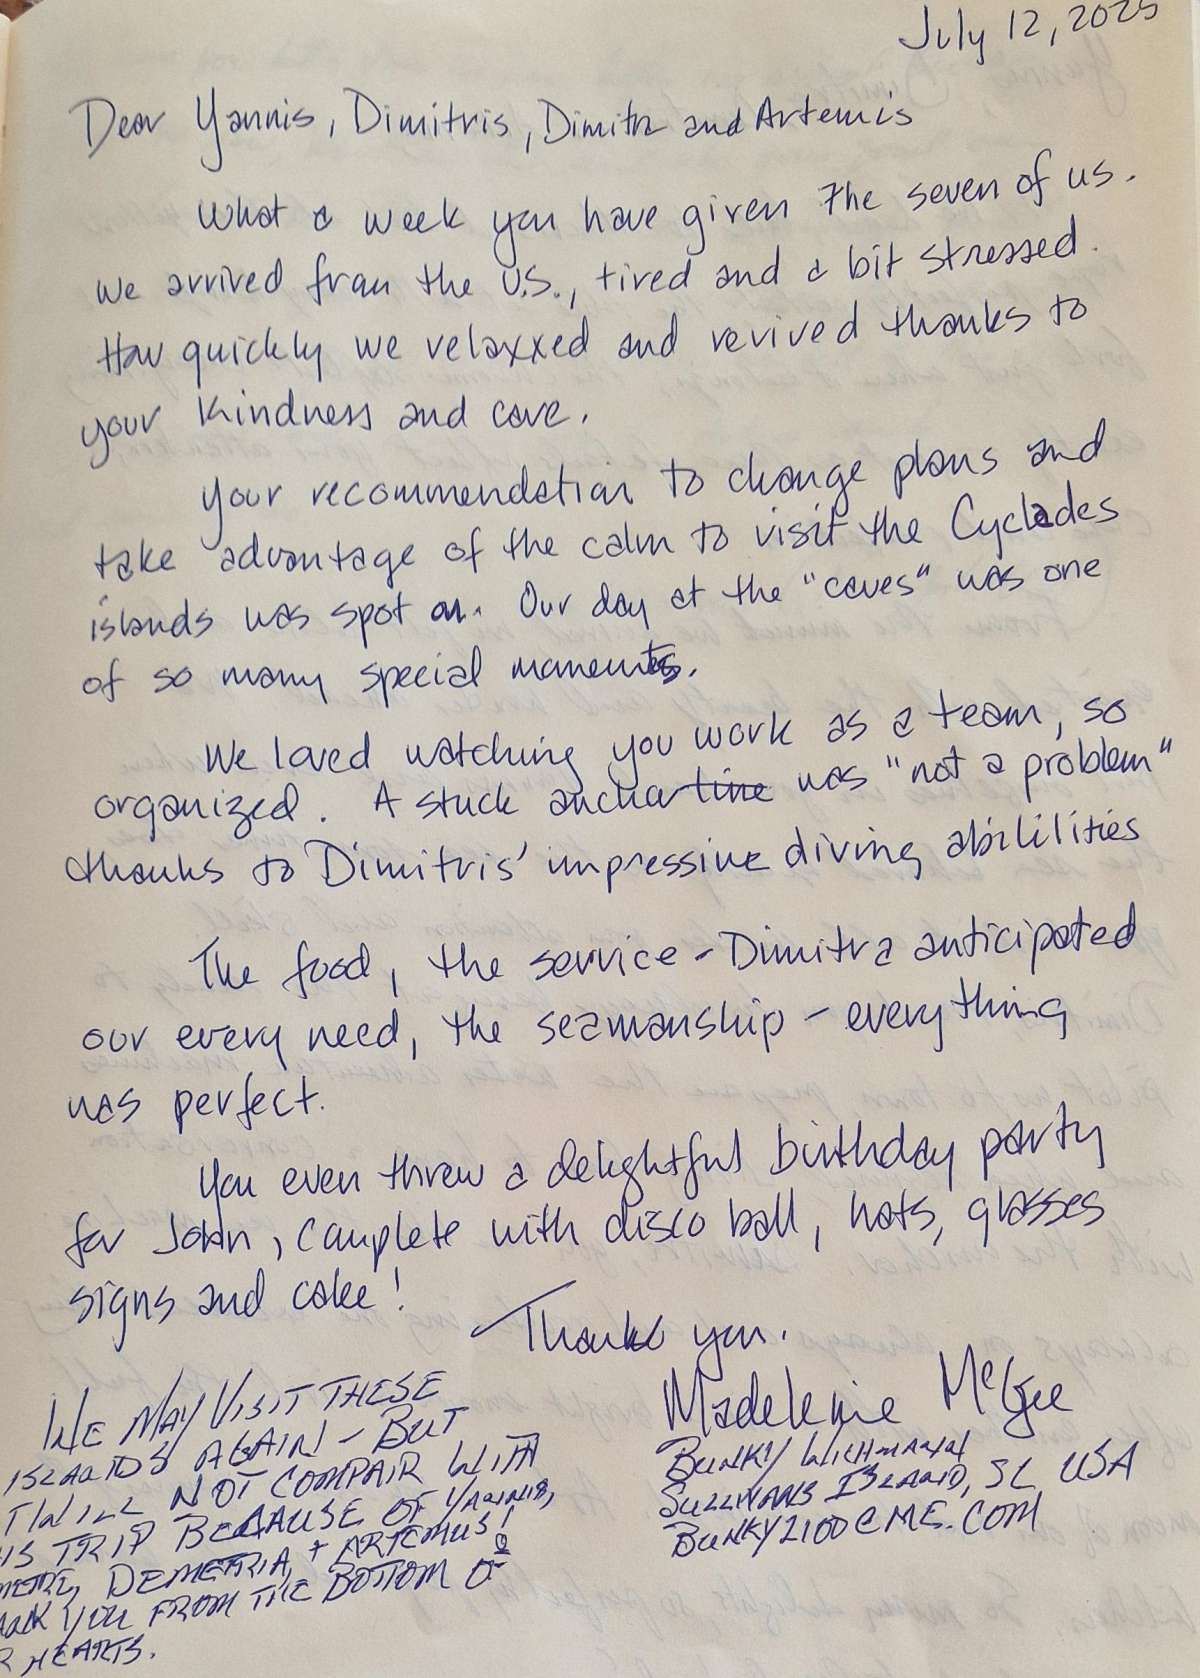 July 12, 2025
Dear Yannis, Dimitris, Dimitra and Artemis
What a week you have given the seven of us.
We arrived from the U.S., tired and a bit stressed.
How quickly we relaxxed and revived thanks to
your kindness and care.
Your recommendation to change plans and
take advantage of the calm to visit the Cyclades
islands was spot on. Our day at the "caves" was one
of so many special moments.
We loved watching you work as a team, so
organized. A stuck anchor line was "not a problem"
thanks to Dimitris' impressive diving abilities
The food, the service - Dimitra anticipated
our every need, the seamanship - everything
was perfect.
You even threw a delightful birthday party
for John, complete with disco ball, hats, glasses
signs and cake!
Thank you.
Madeleine McGee
BUNKY WICHMANN
SULLIVANS ISLAND, SC USA
BUNKY2100@ME.COM
WE MAY VISIT THESE
ISLANDS AGAIN - BUT
IT WILL NOT COMPAIR WITH
IS TRIP BECAUSE OF YANNIS,
DEMETRIA, + ARTEMUS!
YOU FROM THE BOTTOM OF
HEARTS.